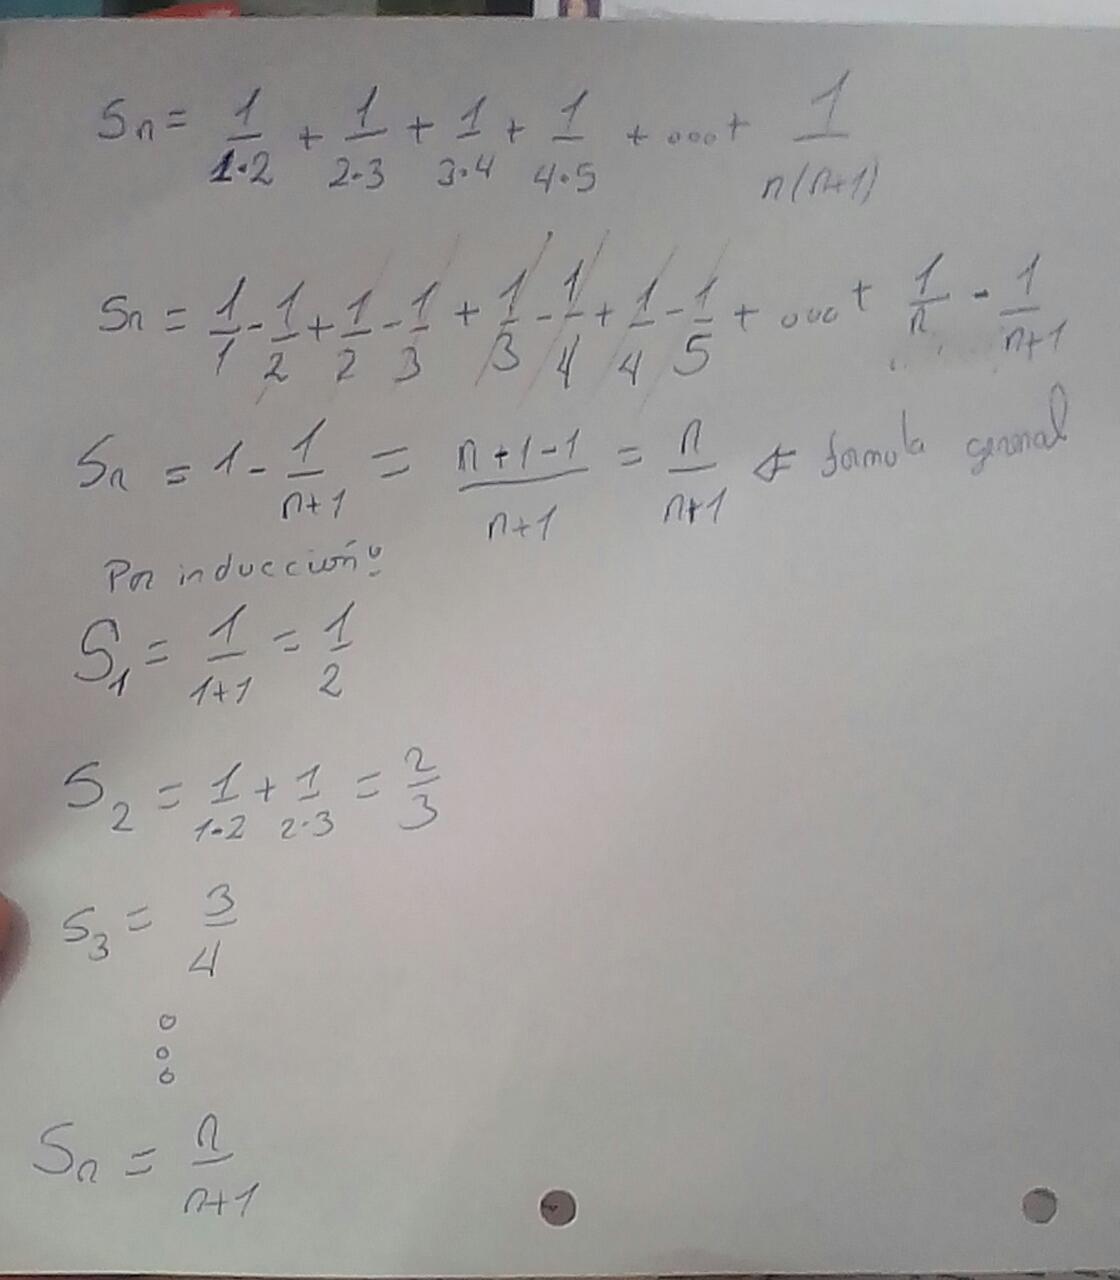 Sn = 1/1·2 + 1/2·3 + 1/3·4 + 1/4·5 + ... + 1/n(n+1)
Sn = 1/1 - 1/2 + 1/2 - 1/3 + 1/3 - 1/4 + 1/4 - 1/5 + ... + 1/n - 1/n+1
Sn = 1 - 1/n+1 = n+1-1/n+1 = n/n+1 ⇐ formula general
Por inducción:
S₁ = 1/1+1 = 1/2
S₂ = 1/1·2 + 1/2·3 = 2/3
S₃ = 3/4
⋮
Sn = n/n+1